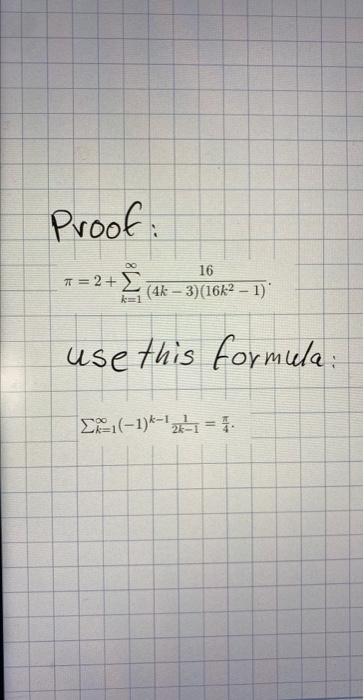 Proof:
π = 2 + ∑_{k=1}^{∞} 16 / ((4k − 3)(16k² − 1)).
use this formula:
∑_{k=1}^{∞} (−1)^{k−1} 1/(2k−1) = π/4.